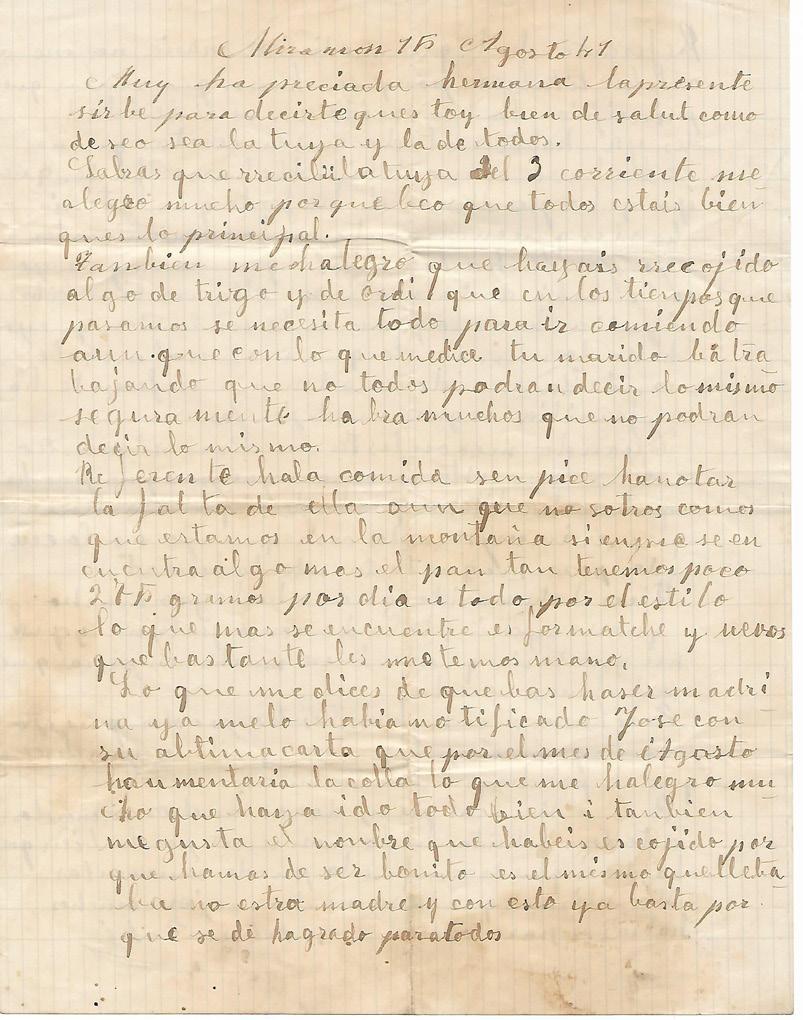 Miramon 15 Agosto 41
Muy ha preciada hermana lapresente
sirbe para decirte ques toy bien de salut como
de seo sea la tuya y la de todos.
Sabras que rrecibi la tuya del 3 corriente me
alegro mucho por que beo que todos estais bien
ques lo principal.
Tanbien mehalegro que hayais rrecojido
algo de trigo y de ordi que en los tienpos que
pasamos se necesita todo para ir comiendo
aun que con lo que medice tu marido ba tra
bajando que no todos podran decir lo mismo
segura mente habra muchos que no podran
decir lo mismo.
Re ferente hala comida sen pice hanotar
la falta de ella aun que no sotros como
que estamos en la montaña sienpre se en
cuentra algo mas el pan tan tenemos poco
275 gramos por dia u todo por el estilo
lo que mas se encuentre es formatche y uevos
que bastante les metemos mano.
Lo que me dices de que bas haser madri
na ya melo habia no tificado Jose con
su altima carta que por el mes de Agosto
haumentaria la colla lo que me halegro mu
cho que haya ido todo bien i tanbien
megusta el nonbre que habeis es cojido por
que hamas de ser bonito es el mismo quelleba
ba no estra madre y con esto ya basta por
que se de hagrado paratodos